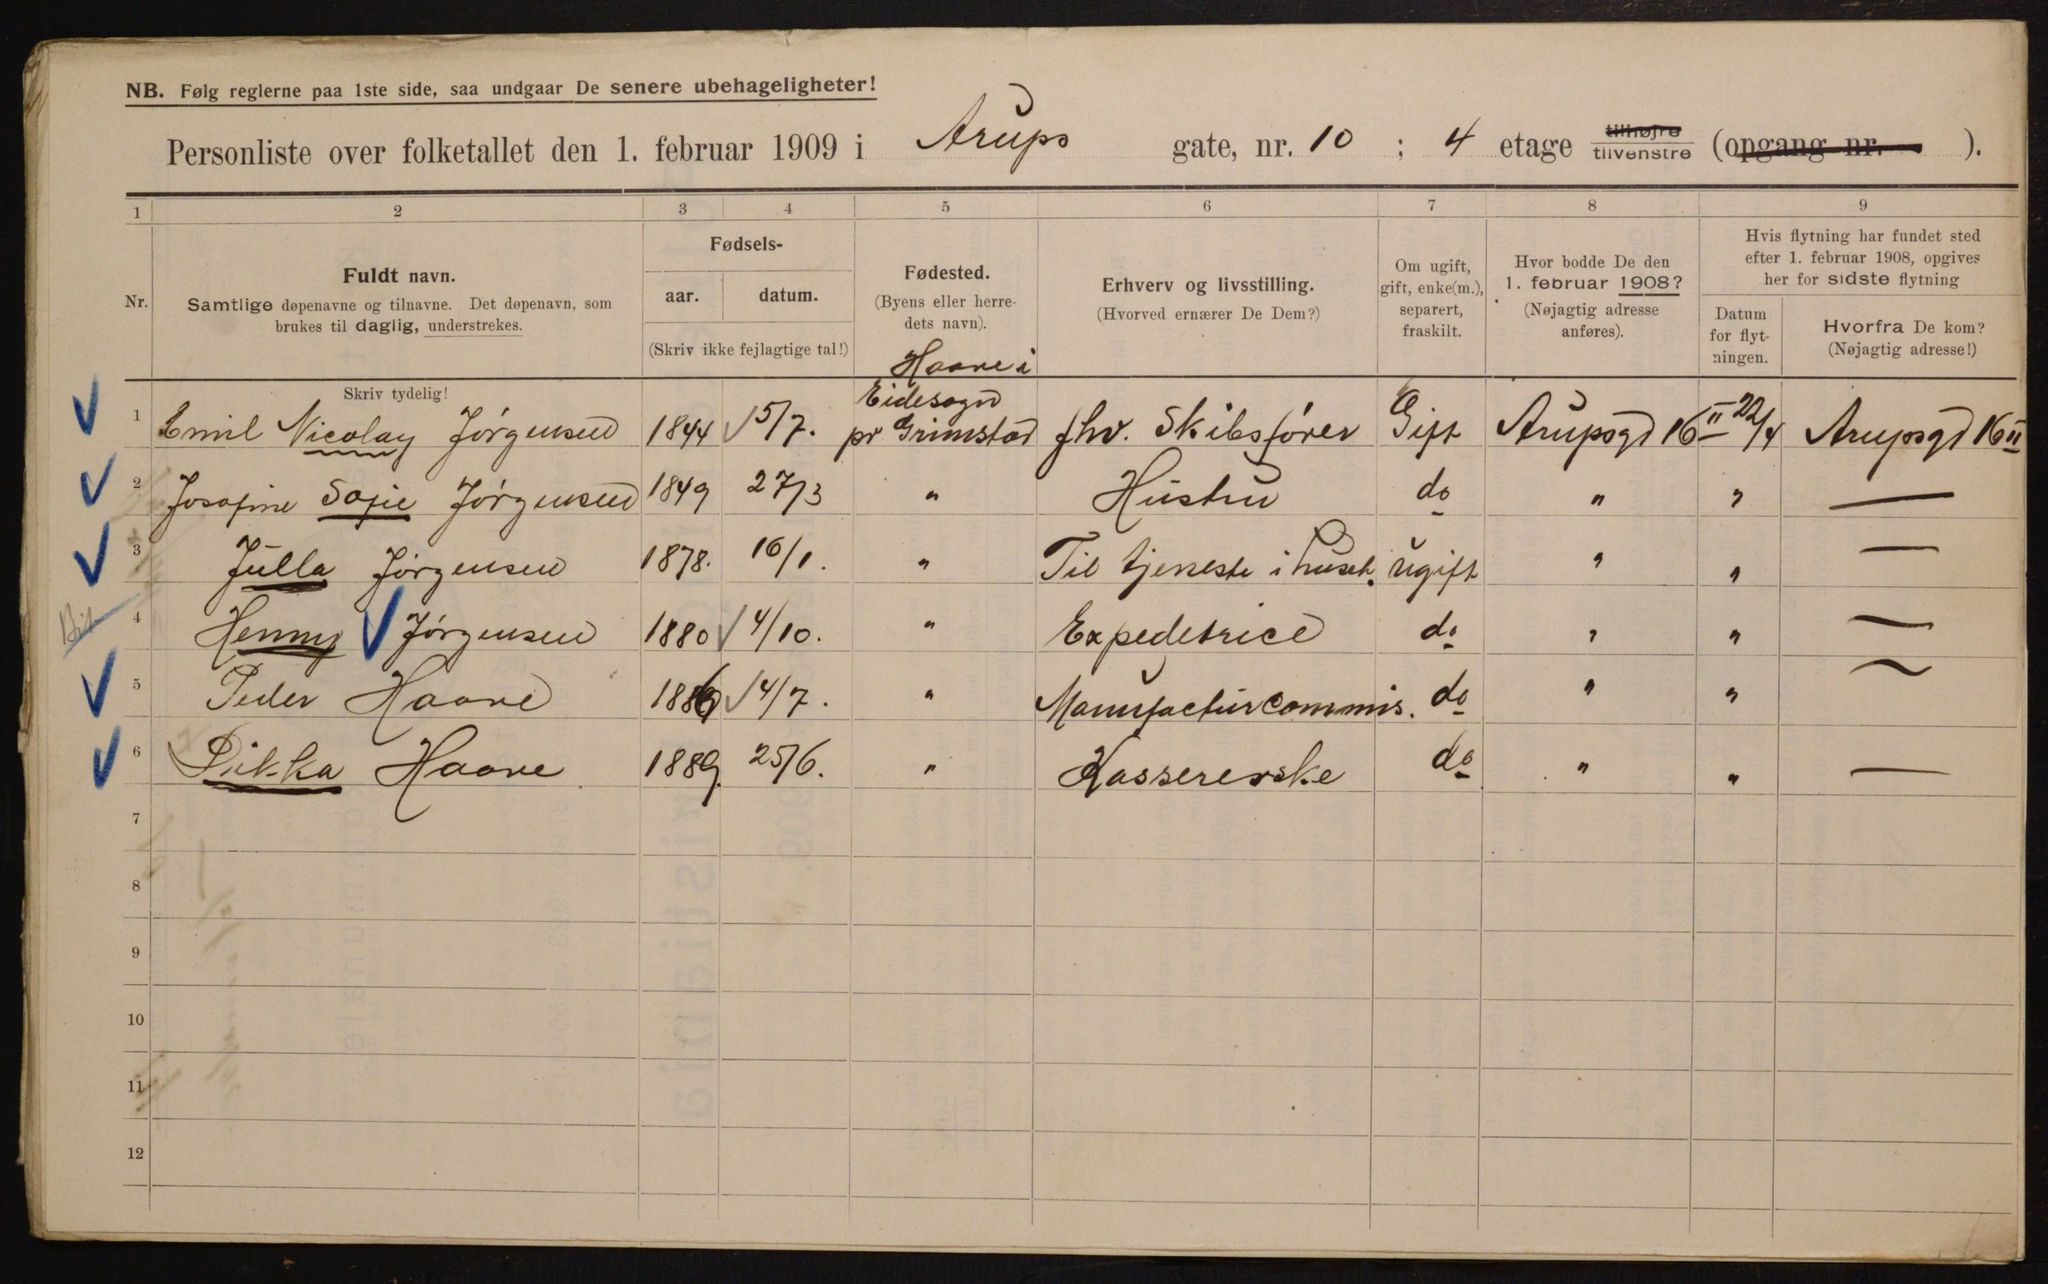 NB. Følg reglerne paa 1ste side, saa undgaar De senere ubehageligheter!
Personliste over folketallet den 1. februar 1909 i Arups gate, nr. 10 ; 4 etage tilhøjre tilvenstre (opgang nr. ).
1 2 3 4 5 6 7 8 9
Nr.
Fuldt navn.
Samtlige døpenavne og tilnavne. Det døpenavn, som
brukes til daglig, understrekes.
Fødsels-
aar. datum.
(Skriv ikke fejlagtige tal!)
Fødested.
(Byens eller herre-
dets navn).
Erhverv og livsstilling.
(Hvorved ernærer De Dem?)
Om ugift,
gift, enke(m.),
separert,
fraskilt.
Hvor bodde De den
1. februar 1908?
(Nøjagtig adresse
anføres).
Hvis flytning har fundet sted
efter 1. februar 1908, opgives
her for sidste flytning
Datum
for flyt-
ningen.
Hvorfra De kom?
(Nøjagtig adresse!)
Skriv tydelig!
Haave i
Eidesogn
1 Emil Nicolay Jørgensen 1844 5/7. pr Grimstad fhv. Skibsfører Gift Arupsgd 16 II 22/4 Arupsgd 16 II
2 Josefine Sofie Jørgensen 1849 27/3 " Hustru do " " —
3 Julla Jørgensen 1878. 16/1. " Til tjeneste i huset. ugift " " —
4 Henny Jørgensen 1880 4/10. " Expeditrice do " " —
5 Peder Haave 1886 4/7. " Manufacturcommis. do " " —
6 Dikka Haave 1889. 25/6. " Kassererske do " " —
7
8
9
10
11
12